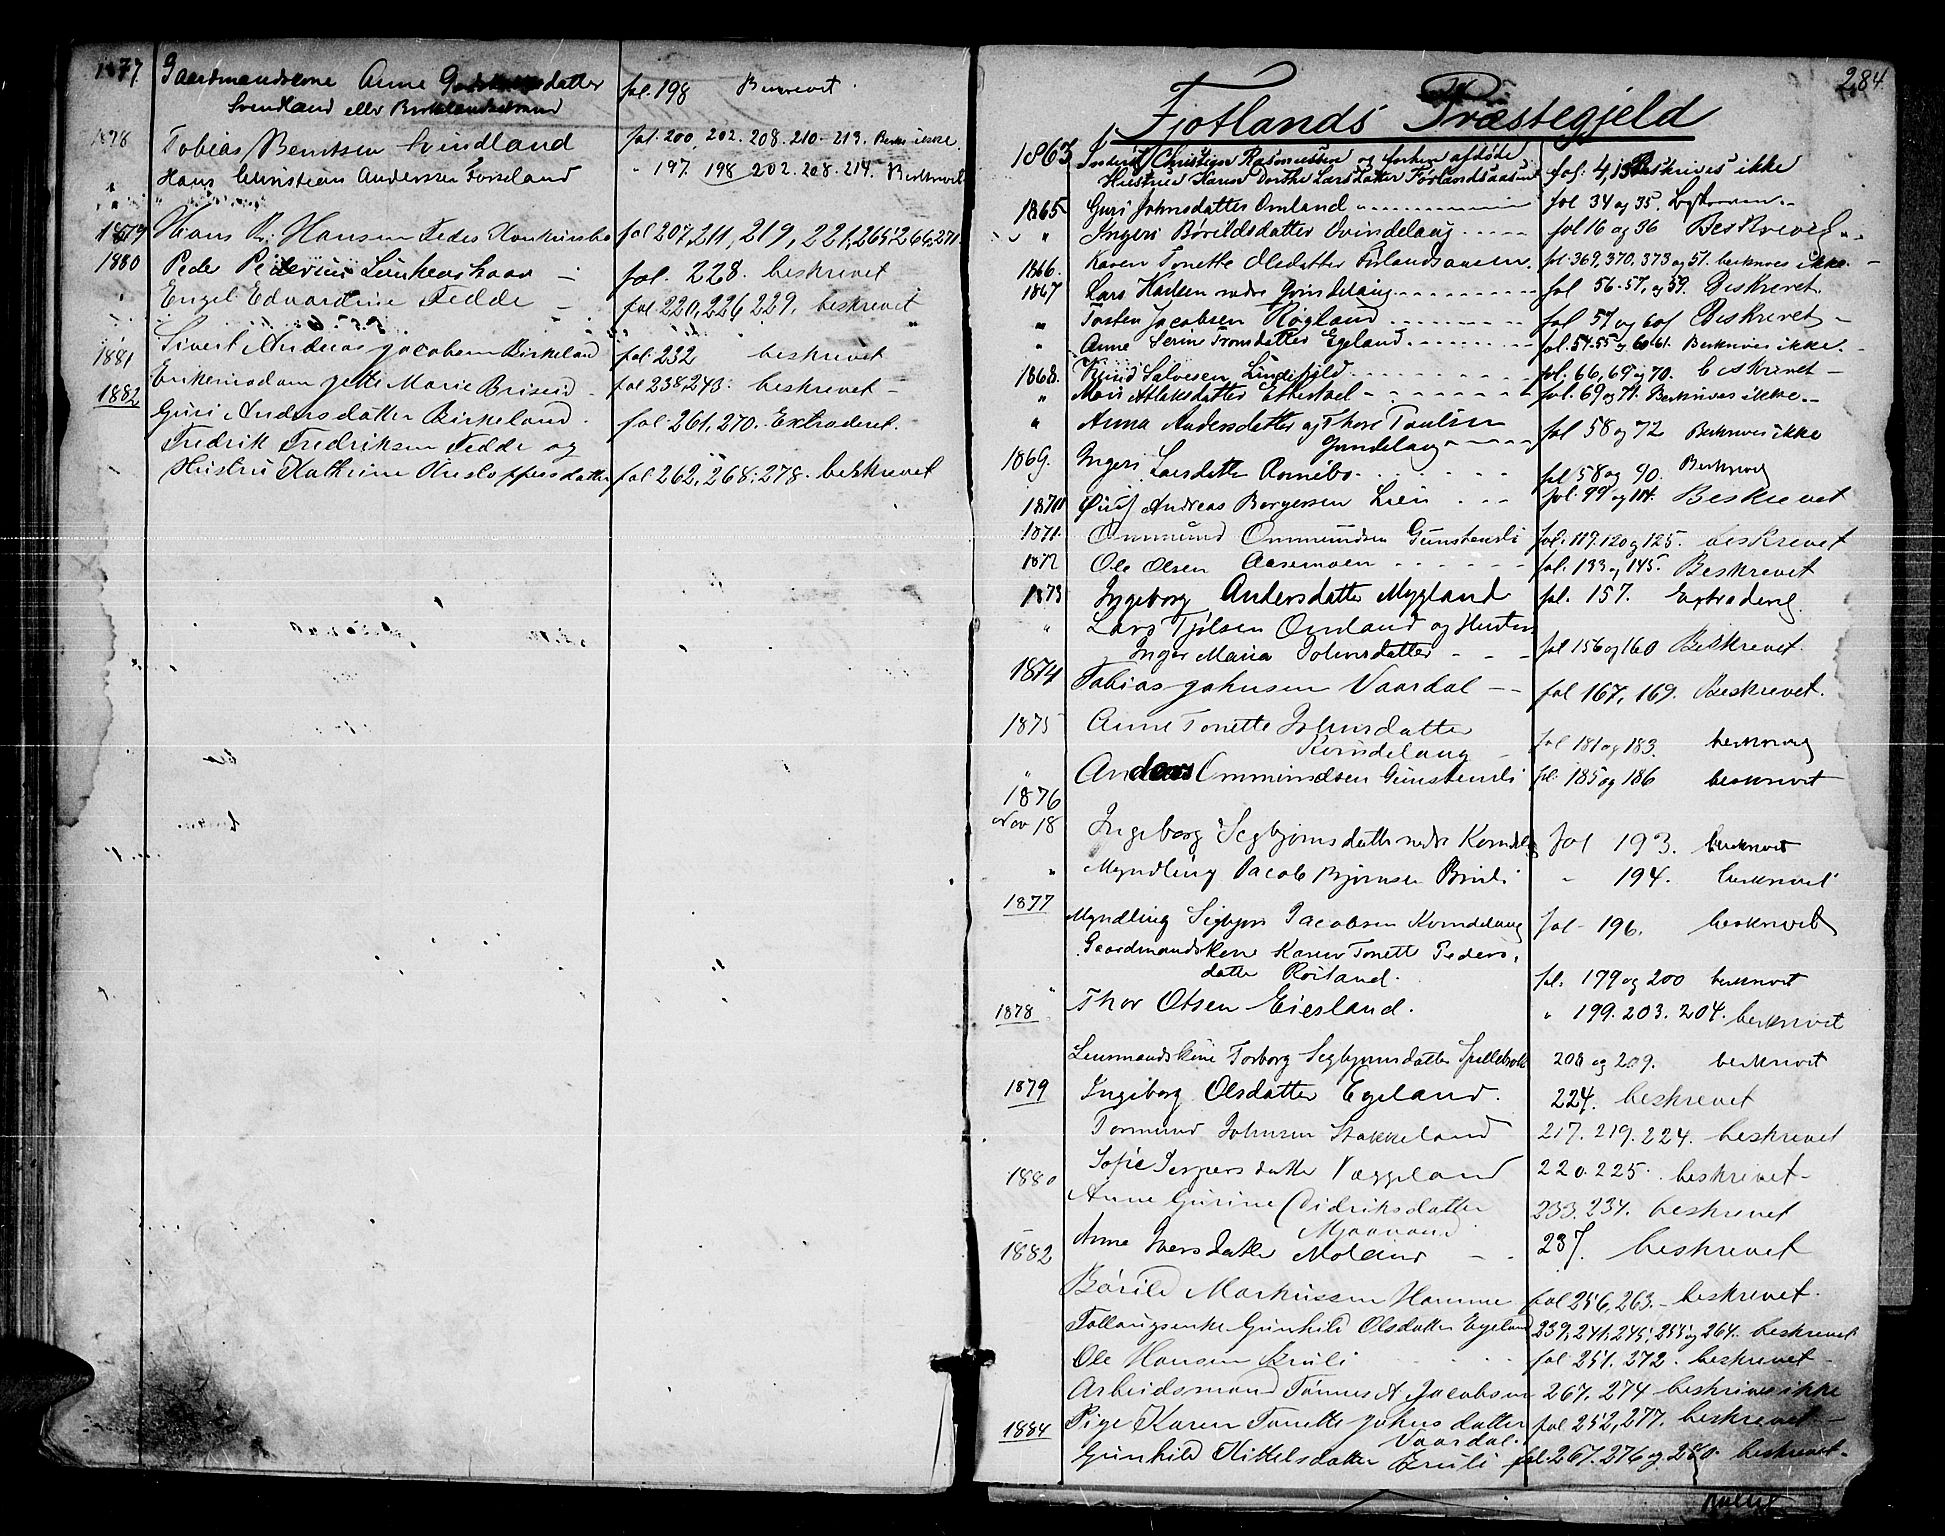 1877 Gaardmandskone Anne datter fol. 198 Beskrevet.
Svindland eller Birkelandsstrand
1878 Tobias Berntsen Svindland fol. 200, 202. 208. 210- 213. Beskr ikke.
" Hans Christian Anderssen Forseland " 197. 198 202. 208. 214. Beskrevet
1879 Hans Hansen Feddes fol 207, 211, 219, 221, 265, 266, 271
1880 Peder Pederius - fol. 228. beskrevet
" Engel Edvardine Fedde - fol 220, 226 229, beskrevet
1881 Sivert Andreas Jacobsen Birkeland fol. 232 beskrevet
1882 Enkemadam Jette Marie Briseid fol 238, 243: beskrevet -
Guri Andersdatter Birkeland. fol 261, 270. Extraderet.
Fredrik Fredriksen Fedde og
Hustru Kathrine datter fol 262, 268, 278. beskrevet
284
Fjotlands Præstegjeld
1863 Christian Rasmussen og forhen afdøde
Hustrue Karen Dorthe Larsdatter fol: 4, Beskrives ikke
1865 Guri Johnsdatter Omland fol 34 og 35.
" Ingeri Børildsdatter Qvindelaug fol 16 og 36 Beskrevet
1866. Karen Tonette Oledatter fol. 369, 370, 373 og 51. beskrives ikke.
1867 Lars Hansen nedre Qvindelaug fol 56. 57, og 59. Beskrevet.
" Torsten Jacobsen Høgland fol 57 og 60 Beskrevet -
" Anne Serine Tronsdatter Egeland fol. 54. 55 og 60. 61. Beskrives ikke.
1868. Salvesen Lindefjeld fol. 66, 69 og 70. Beskrevet -
" Mari Atlaksdatter fol. 69 og 71. Beskrives ikke.
" Anna Andersdatter og Thore Paulsen
Qvindelaug fol 58 og 72 Beskrives ikke
1869. Ingeri Larsdatter fol 58 og 90. Beskrevet
1870 Andreas Børgersen Lien fol. 99 og 104. Beskrevet
1871. Ommund Ommundsen Gunstensli fol. 117. 120 og 125. beskrevet
1872 Ole Olsen Aasemoen fol. 133 og 145. Beskrevet
1873 Ingeborg Andersdatter Mygland fol. 157. Extraderet.
" Lars Tjølsen Omland og Hustru
Inger Maria Johnsdatter - - - fol 156 og 160 Beskrevet.
1874 Tobias Johnsen Vaardal - - fol 167, 169. Beskrevet.
1875 Anne Tonette Johnsdatter
Kvindelaug fol 181 og 183. beskrevet
" Anders Ommundsen Gunstensli fol. 185 og 186 beskrevet
1876
Nov 18 Ingeborg Segbjørnsdatter nedre fol 193. beskrevet
" Myndling Jacob Bjørnsen Bruli " 194. beskrevet
1877 Myndling Sigbjørn Jacobsen Kvindelaug fol - 196. beskrevet
Gaardmandskone Karen Tonett Peders-
" datter Røiland. fol. 179 og 200 beskrevet
1878 Thor Olsen Eiesland. " 199. 203. 204. beskrevet
Lensmandskone Torborg Segbjørnsdatter 208 og 209. beskrevet
1879 Ingeborg Olsdatter Egeland. 224. beskrevet
Tormund Johnsen Stakkeland 217. 219. 224. beskrevet
1880 Sofie Jespersdatter Væggeland 220. 225. beskrevet -
Anne Gurine Didriksdatter
Mjaavand 233. 234. beskrevet
1882 Anna Iversdatter Moland - - 237. beskrevet
Børild Markussen Homme fol 256, 263. - beskrevet.
Follaugsenke Gunhild Olsdatter Egeland 239, 241, 245, 255 og 264. beskrevet
Ole Hansen Bruli fol 251. 272. beskrevet -
Arbeidsmand Tønnes A. Jacobsen 267, 274 beskrives ikke
1884 Pige Karen Tonette Johnsdatter fol 252, 277. beskrevet -
Vaardal.
Gunhild Kittelsdatter Bruli fol. 267. 276 og 280. beskrevet -